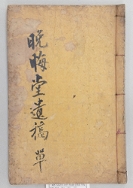 晩晦堂遺稿 單